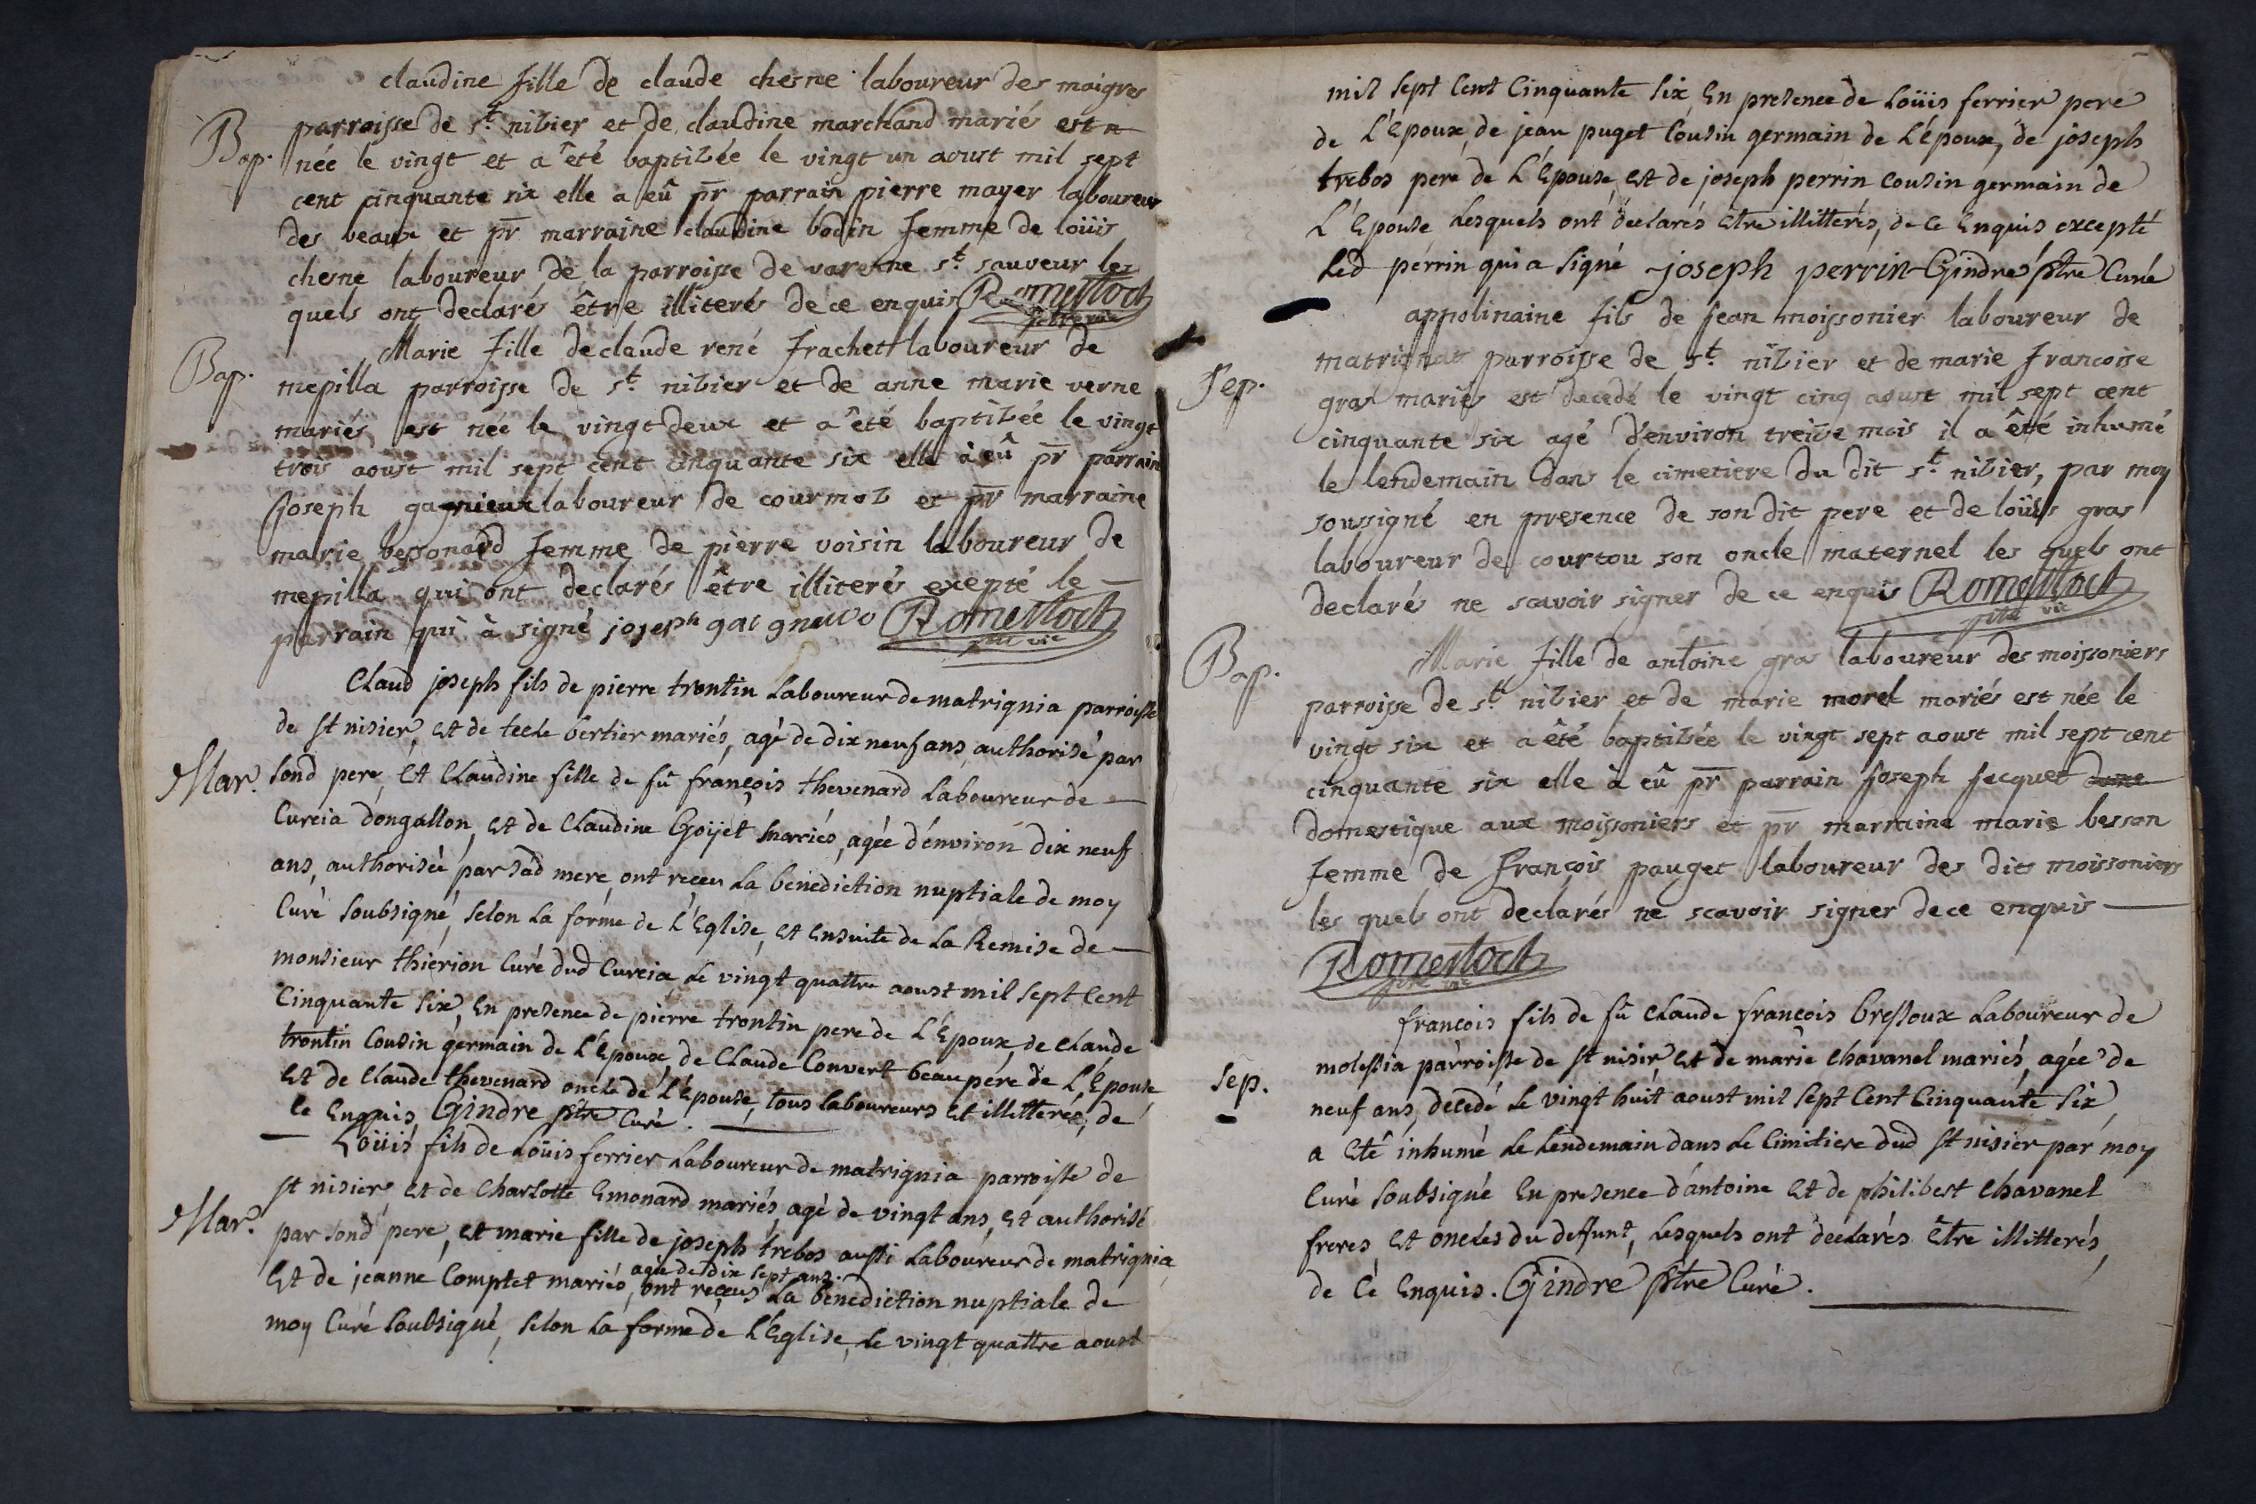 claudine fille de claude chesne laboureur des maigres
Bap. parroisse de st. nizier et de claudine marchand marié est n
née le vingt et a été baptizée le vingt un aoust mil sept
cent cinquante six elle a eû pr parrain pierre mayer laboureur
des veaux et pr marraine claudine bodin femme de loüis
chesne laboureur de la parroisse de varenne st. sauveur les
quels ont declarés être illiterés de ce enquis Romestoch
ptre vic
Marie fille de claude rené frachet laboureur de
Bap. mepilla parroisse de st. nizier et de anne marie verne
mariés est née le vingt deux et a été baptizée le vingt
trois aoust mil sept cent cinquante six elle a eû pr parrain
joseph gagnieux laboureur de courmoz et pr marraine
marie bessonard femme de pierre voisin laboureur de
mepilla qui ont declarés être illiterés exepté le
parrain qui à signé joseph Romestoch
ptre vic
Claud joseph fils de pierre trontin Laboureur de matrignia parroisse
de st nisier, et de tecle bertier mariés, agé de dix neuf ans authorisé par
Mar. sond pere, et Claudine fille de fû françois thevenard Laboureur de
Cureia dongallon, et de Claudine Goijet mariés, agée d'environ dix neuf
ans, authorisée par sad mere, ont receu La benediction nuptiale de moy
Curé soubsigné, selon La forme de L'Eglise, et ensuite de La Remise de
monsieur thiérion Curé dud Cureia Le vingt quattre aoust mil sept Cent
Cinquante six, en presence de pierre trontin pere de L'Epoux, de Claude
trontin Cousin germain de L'Epoux, de Claude Convert beaupére de L'Epouse
et de Claude thevenard oncle de L'Epouse, tous laboureurs et illitterés, de
ce Enquis, Gindre ptre Curé.
Loüis fils de Loüis ferrier Laboureur de matrignia parroisse de
st nisier et de Charlotte Emonard mariés, agé de vingt ans, et authorisé
Mar. par sond pere, et marie fille de joseph trebos aussi Laboureur de matrignia
agée de dix sept ans.
et de jeanne Comptet mariés, ont reçeus La benediction nuptiale de
moy Curé soubsigné, selon La forme de L'Eglise, Le vingt quattre aoust
mil sept Cent Cinquante six, en presence de Loüis ferrier pere
de L'Epoux, de jean puget Cousin germain de L'époux, de joseph
trebos pere de L'Epouse, et de joseph perrin Cousin germain de
L'Epouse Lesquels ont declarés etre illitterés, de ce Enquis excepté
Led perrin qui a signé joseph perrin Gindre ptre Curé
appolinaine fils de jean moissonier laboureur de
matrignat parroisse de st. nizier et de marie francoise
Sep. gras mariés est decedé le vingt cinq aoust mil sept cent
cinquante six agé d'environ treize mois il a été inhumé
le lendemain dans le cimetiere du dit st. nizier, par moy
soussigné en presence de son dit pere et de loüis gras
laboureur de courtou son oncle maternel les quels ont
declarés ne scavoir signer de ce enquis Romestoch
ptre vic
Bap. Marie fille de antoine gras laboureur des moissoniers
parroisse de st. nizier et de marie morel mariés est née le
vingt six et a été baptizée le vingt sept aoust mil sept cent
cinquante six elle à eû pr parrain joseph jacquet
domestique aux moissoniers et pr marraine marie besson
femme de françois pauget laboureur des dits moissoniers
les quels ont declarés ne scavoir signer de ce enquis
Romestoch
ptre vic
françois fils de fû Claude françois bressoux Laboureur de
molessia parroisse de st nisier et de marie Chavanel mariés, agée de
Sep. neuf ans, decedé Le vingt huit aoust mil sept Cent Cinquante six
a eté inhumé Le Lendemain dans Le Cimitiere dud st nisier par moy
Curé soubsigné en presence d'antoine et de philibest Chavanel
freres et oncles du deffunt, Lesquels ont declarés être illitterés,
de Ce Enquis. Gindre ptre Curé.